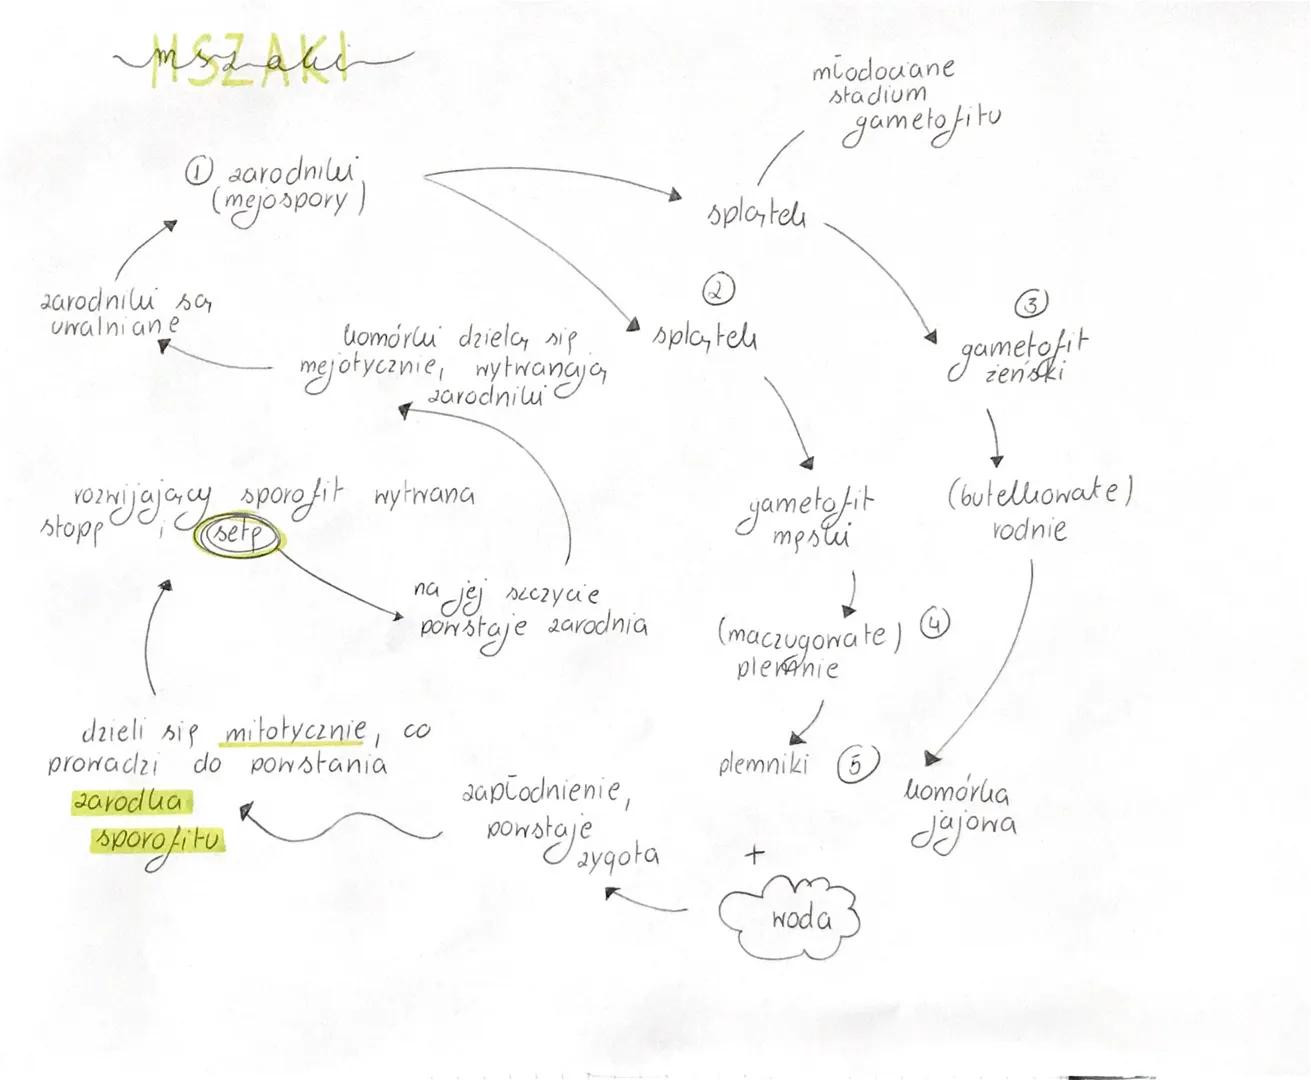 MSZAKI
mszaki
młodociane
stadium
gametofitu
① zarodniki
(mejospory)
splątek
zarodniki są
uwalniane
②
splątek
③
gametofit
żeński
komórki dzielą się
mejotycznie, wytwarzają
zarodniki
rozwijający sporofit wytwarza
stopę i setę
gametofit
męski
(butelkowate)
rodnie
na jej szczycie
powstaje zarodnia
(maczugowate) ④
plemnie
dzieli się mitotycznie, co
prowadzi do powstania
zarodka
sporofitu
plemniki ⑤
komórka
jajowa
zapłodnienie,
powstaje
zygota
+
woda